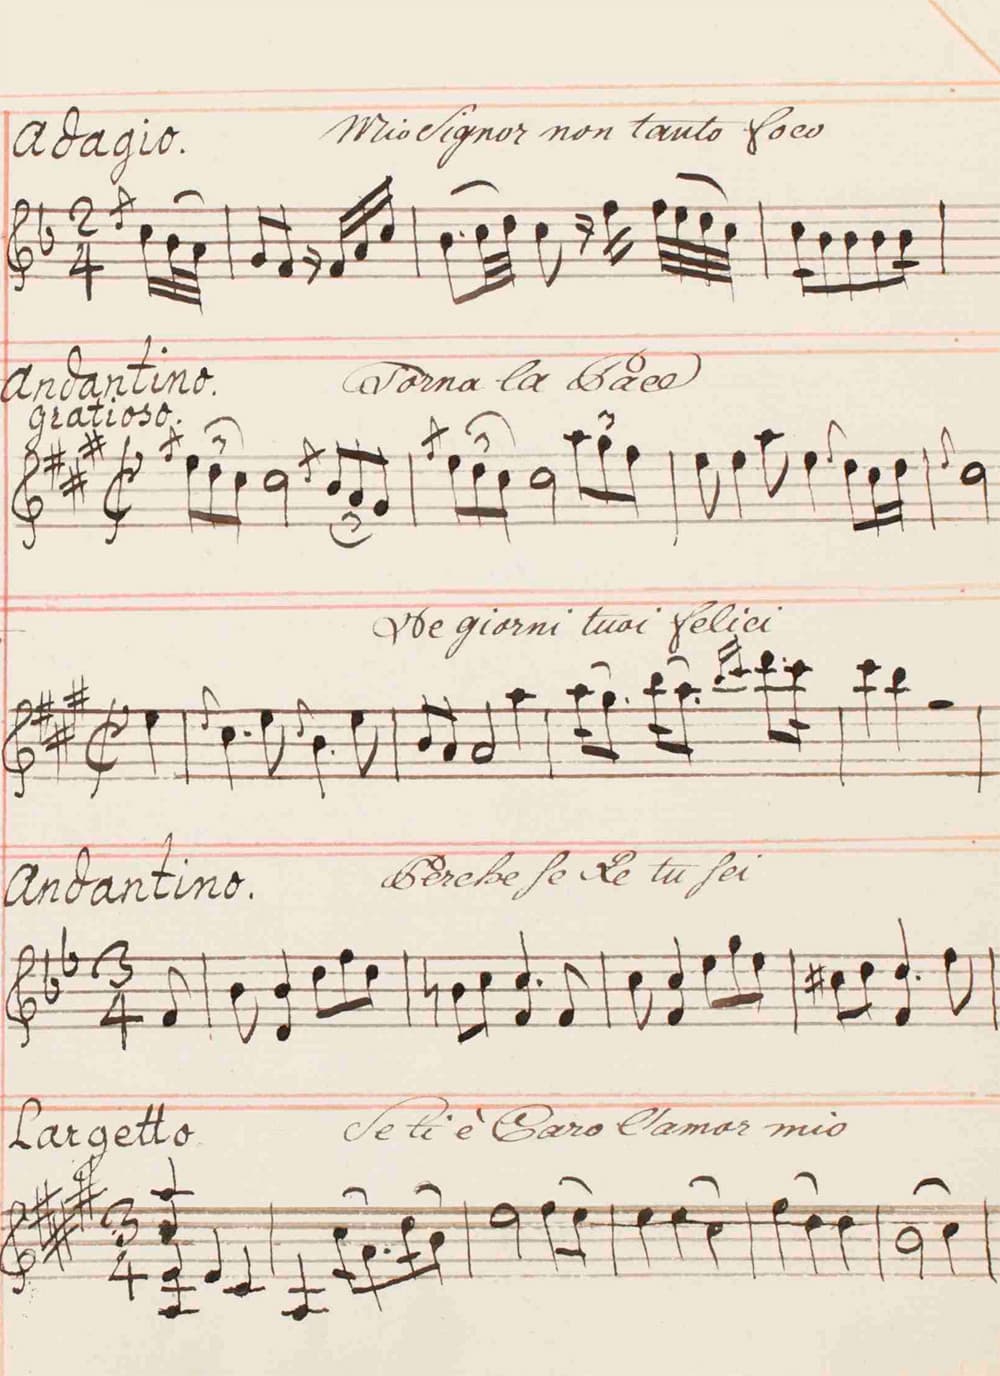 Adagio. Mio Signor non tanto foco
2
4
Andantino. Torna la Pace
gratioso.
3 3 3 3
Ne giorni tuoi felici
Andantino. Perche se Re tu sei
3
4
Largetto Se ti è Caro l'amor mio
3
4